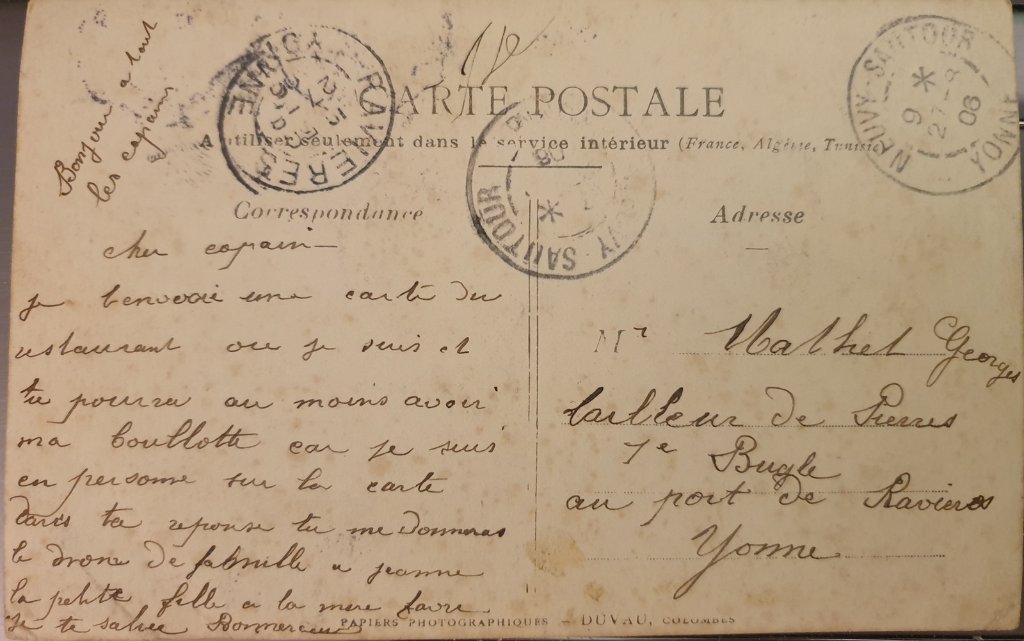 Bonjour a tout
les copains
CARTE POSTALE
A utiliser seulement dans le service intérieur (France, Algérie, Tunisie)
RAVIERES YONNE
NEUVY-SAUTOUR
NEUVY-SAUTOUR YONNE
9 * 27-8 06
Correspondance
cher copain -
je t'envoie une carte du
restaurant ou je suis et
tu pourra au moins avoir
ma boullotte car je suis
en personne sur la carte
dans ta reponse tu me donneras
le de famille a jeanne
la petite fille a la mere favre
je te salue
Adresse
Mr Mathet Georges
tailleur de Pierres
7e Bugle
au port de Ravieres
Yonne
PAPIERS PHOTOGRAPHIQUES — DUVAU, COLOMBES